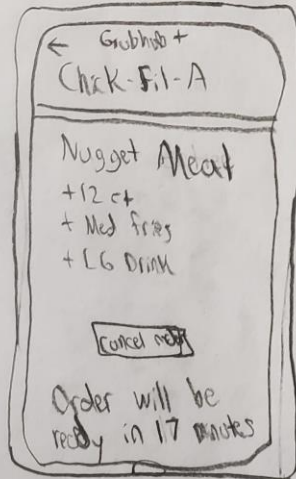 ← Grubhub +
Chick-Fil-A
Nugget Meat
+12 ct
+ Med fries
+ LG Drink
cancel
Order will be
ready in 17 minutes